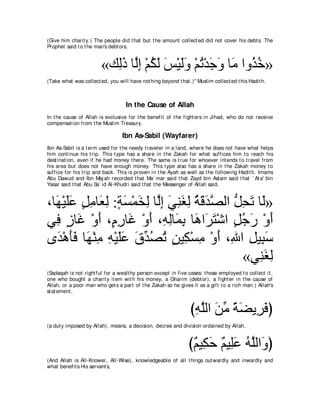 (Give him charity.) The people did that but the amount collected did not cover his debts. The
Prophet said to the man's debtors,
«خُذُوا مَا وَجَدْتُمْ وَلَيْسَ لَكُمْ إِلَّا ذَلِك»
(Take what was collected, you will have nothing beyond that.)" Muslim collected this Hadith.
In the Cause of Allah
In the cause of Allah is exclusive for the benefit of the fighters in Jihad, who do not receive
compensation from the Muslim Treasury.
Ibn As-Sabil (Wayfarer)
Ibn As-Sabil is a term used for the needy traveler in a land, where he does not have what helps
him continue his trip. This type has a share in the Zakah for what suffices him to reach his
destination, even if he had money there. The same is true for whoever intends to travel from
his area but does not have enough money. This type also has a share in the Zakah money to
suffice for his trip and back. This is proven in the Ayah as well as the following Hadith. Imams
Abu Dawud and Ibn Majah recorded that Ma`mar said that Zayd bin Aslam said that `Ata' bin
Yasar said that Abu Sa`id Al-Khudri said that the Messenger of Allah said,
«لَا تَحِلُّ الصَّدَقَةُ لِغَنِيَ إِلَّا لِخَمْسَةٍ: لِعَامِلٍ عَلَيْهَا،
أَوْ رَجُلٍ اشْتَرَاهَا بِمَالِهِ، أَوْ غَارِمٍ، أَوْ غَازٍ فِي
سَبِيلِ اللهِ، أَوْ مِسْكِينٍ تُصُدِّقَ عَلَيْهِ مِنْهَا فَأَهْدَى
لِغَنِي»
(Sadaqah is not rightful for a wealthy person except in five cases: those employed to collect it,
one who bought a charity item with his money, a Gharim (debtor), a fighter in the cause of
Allah, or a poor man who gets a part of the Zakah so he gives it as a gift to a rich man.) Allah's
statement,
(فَرِيضَةً مِّنَ اللَّهِ)
(a duty imposed by Allah), means, a decision, decree and division ordained by Allah,
(وَاللَّهُ عَلِيمٌ حَكِيمٌ)
(And Allah is All-Knower, All-Wise), knowledgeable of all things outwardly and inwardly and
what benefits His servants,